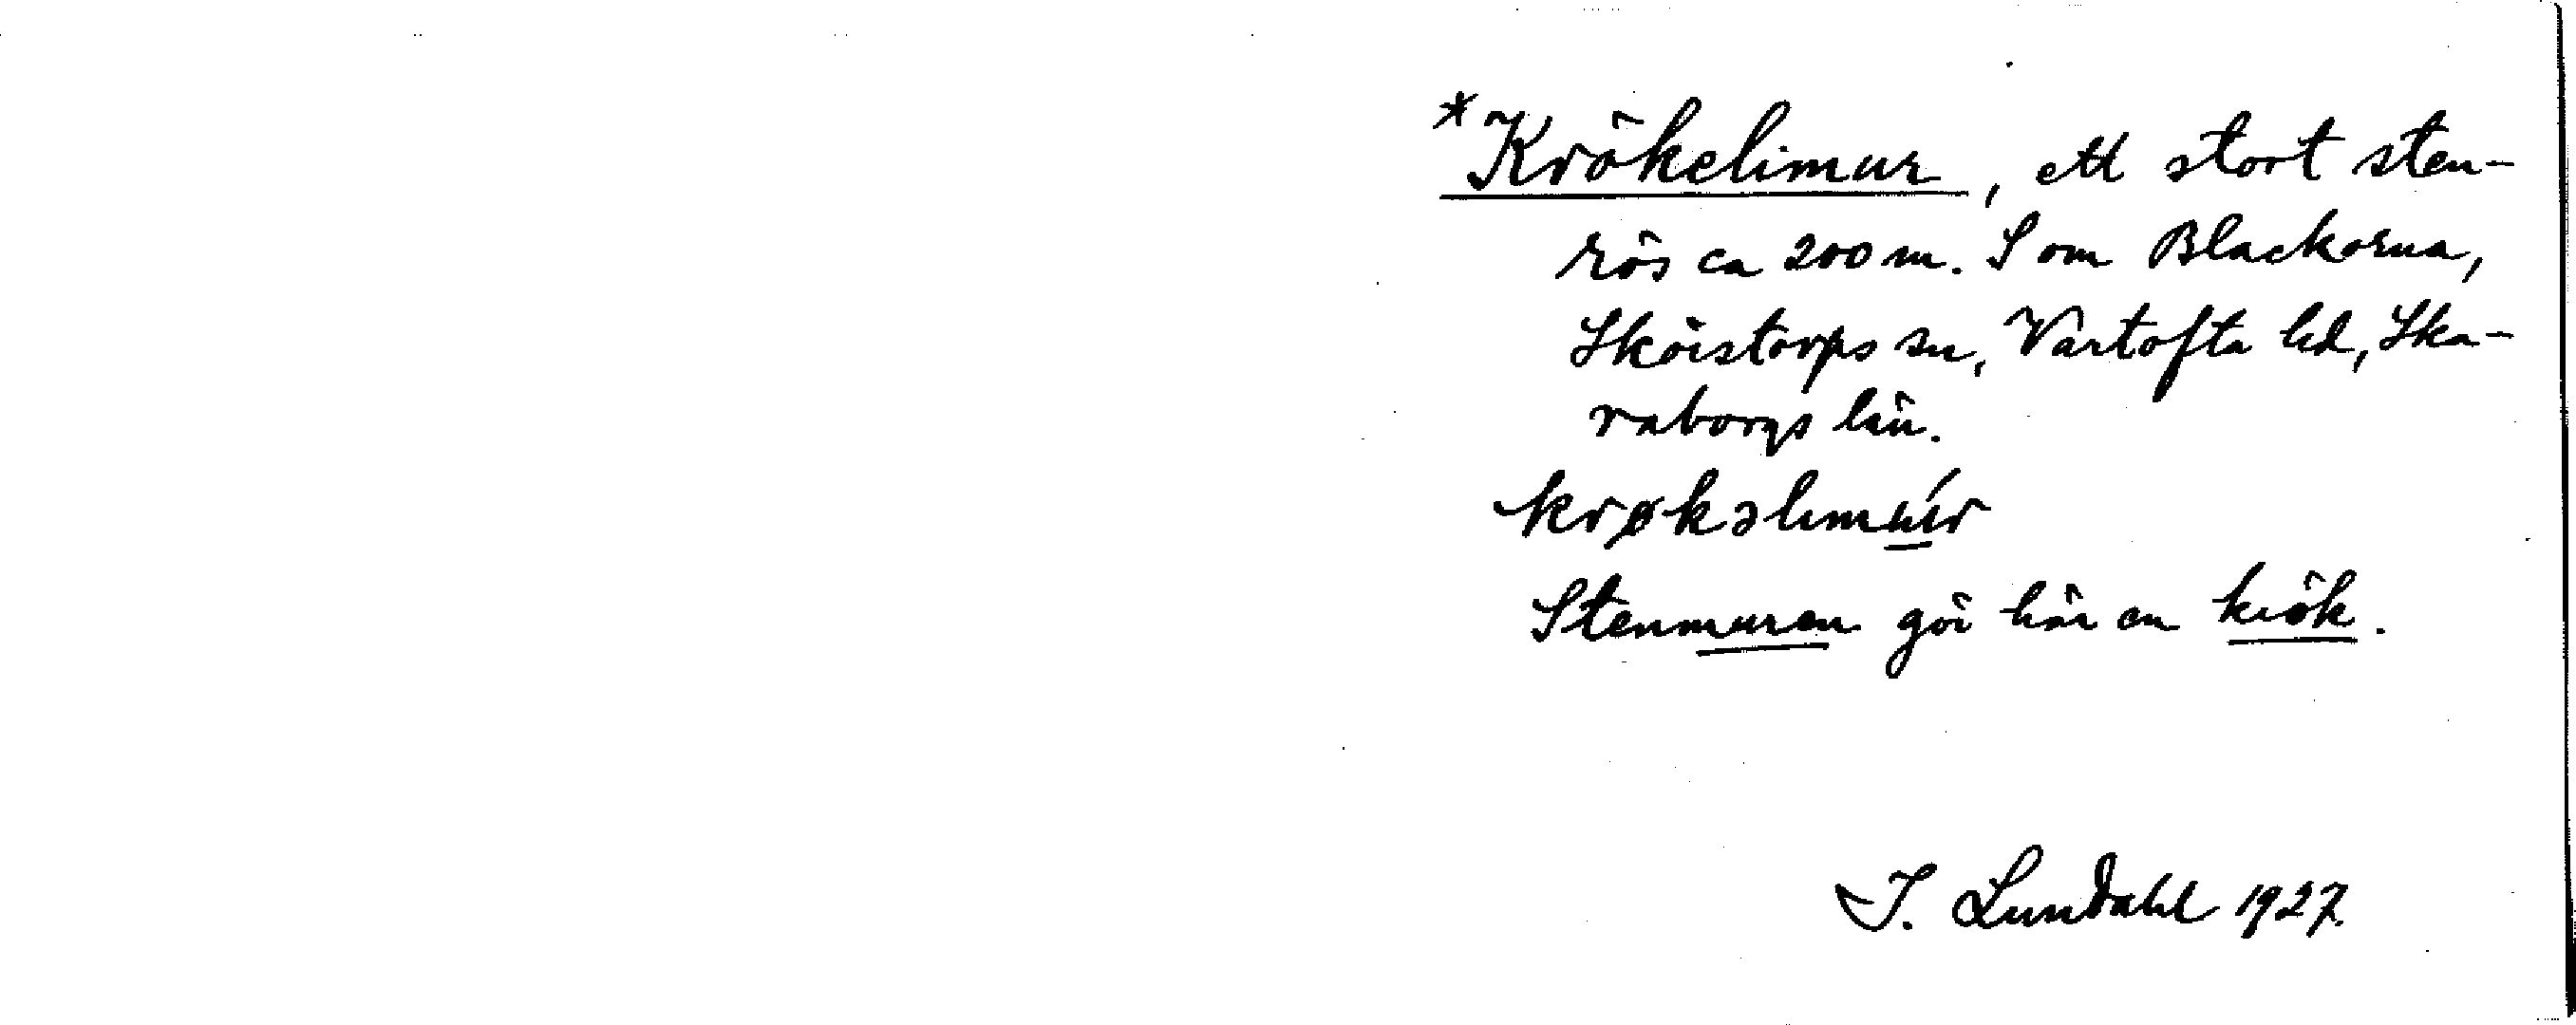 *Krökelimur, ett stort sten-
rös ca 200 m. S om Blackorna,
Skörstorps sn, Vartofta hd, Ska-
raborgs län.
krøkəlimu̲ʹr
Stenmuren gör här en krök.
I. Lundahl 1927.